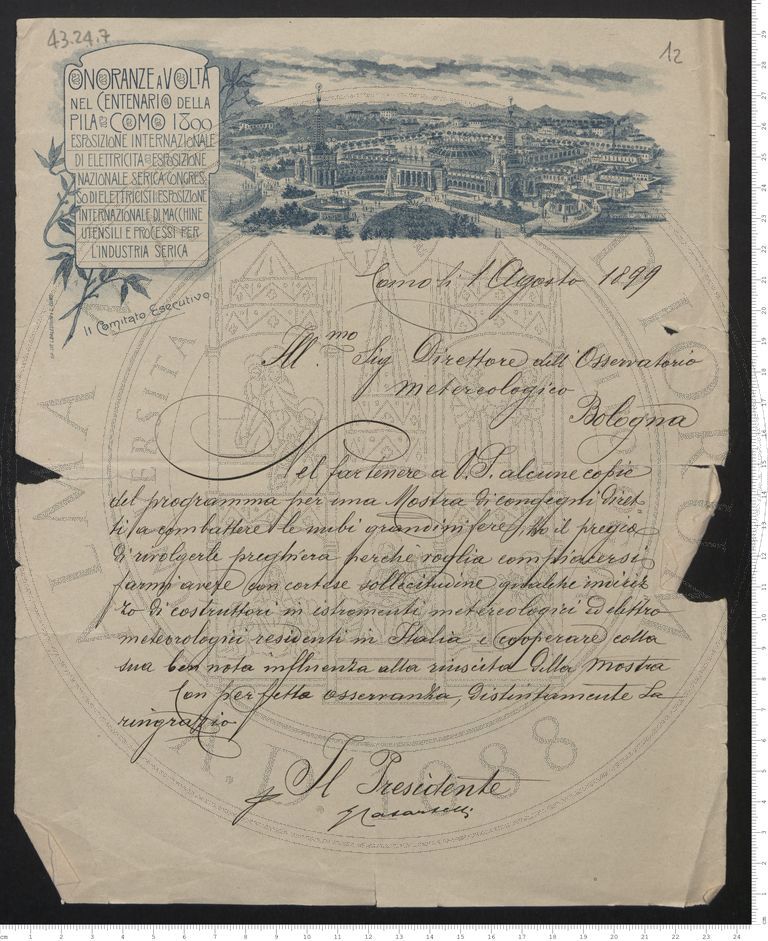 43.24.7
12
ONORANZE A VOLTA
NEL CENTENARIO DELLA
PILA COMO 1899
ESPOSIZIONE INTERNAZIONALE
DI ELETTRICITA ESPOSIZIONE
NAZIONALE SERICA CONGRES-
SO DI ELETTRICISTI ESPOSIZIONE
INTERNAZIONALE DI MACCHINE
UTENSILI E PROCESSI PER
L'INDUSTRIA SERICA
Il Comitato Esecutivo
Como li 1 Agosto 1899
Ill.mo Sig Direttore dell'Osservatorio
Metereologico
Bologna
Nel far tenere a V.S. alcune copie
del programma per una Mostra di congegni diret-
ti a combattere le nubi grandinifere, il pregio
di rivolgerle preghiera perchè voglia compiacersi
farmi avere con cortese sollecitudine qualche indiriz-
zo di costruttori in istromenti metereologici ed elettro
meteorologici residenti in Italia e cooperare colla
sua ben nota influenza alla riuscita della Mostra
Con perfetta osservanza, distintamente La
ringrazio
Il Presidente
ALMA
A.D. 1088